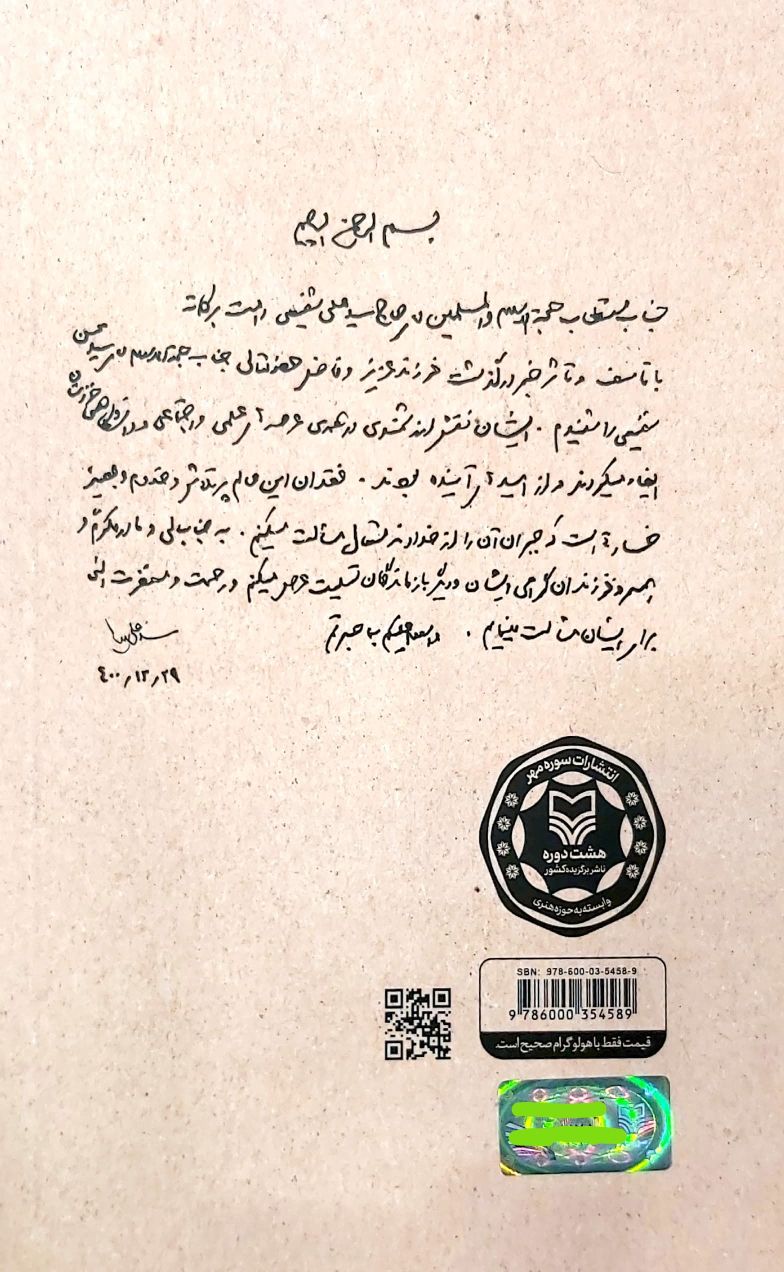 بسم الله الرحمن الرحیم
جناب مستطاب حجةالاسلام والمسلمین آقای حاج سید علی شفیعی دامت برکاته
با تاسف و تاثر خبر درگذشت فرزند عزیز و فاضل جنابعالی جناب حجةالاسلام آقای سید محسن
شفیعی را شنیدم . ایشان نقش ارزشمندی در همه‌ی عرصه‌های علمی و اجتماعی و دانشگاهی خوزستان
ایفاء میکردند و از امیدهای آینده بودند . فقدان این عالم پرتلاش و خدوم و بصیر
خسارتی است که جبران آن را از خداوند متعال مسألت میکنم . به جنابعالی و مادر مکرّم و
همسر و فرزندان گرامی ایشان و دیگر بازماندگان تسلیت عرض میکنم و رحمت و مغفرت الهی
برای ایشان مسألت مینمایم . والسلام علیکم بما صبرتم
سیدعلی خامنه‌ای
۴۰۰٫۱۲٫۲۹
انتشارات سوره مهر
هشت دوره
ناشر برگزیده کشور
وابسته به حوزه هنری
SBN: 978-600-03-5458-9
9 786000 354589
قیمت فقط با هولوگرام صحیح است.